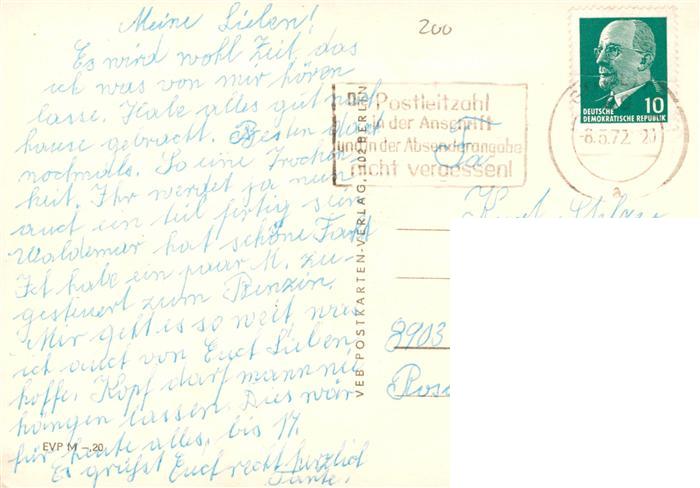 Meine Lieben!
Es wird wohl Zeit, das
ich was von mir hören
lasse. Habe alles gut nach
hause gebracht. Besten Dank
nochmals. So eine Trocken
heit. Ihr werdet ja nun
auch ein teil fertig sein
Waldemar hat schöne Fahrt
Ich habe ein paar M. zu-
gesteuert zum Benzin.
Mir geht es so weit, was
ich auch von Euch Lieben
hoffe. Kopf darf mann nie
hängen lassen. Dies wär
für heute alles, bis 17.
Es grüßt Euch recht herzlich
Tante.
EVP M –,20
VEB POSTKARTEN-VERLAG, 102 BERLIN
200
Postleitzahl
in der Anschrift
und in der Absenderangabe
nicht vergessen!
10
DEUTSCHE
DEMOKRATISCHE REPUBLIK
-6.5.72 20
a
Fa.
8903